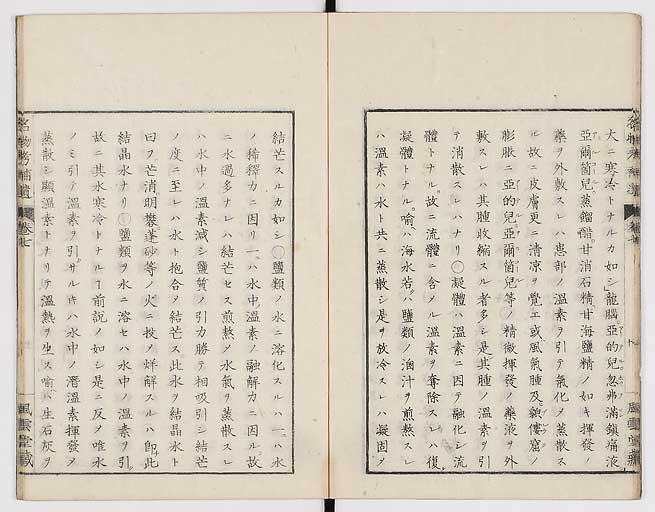 大ニ寒冷トナルカ如シ」龍腦亞的兒忽弗滿鎮痛液
亞爾箇兒蒸餾醋甘消石精甘海鹽精ノ如キ揮發ノ
藥ヲ外敷スレハ患部ノ溫素ヲ引テ氣化メ蒸散ス
ル故ニ皮膚更ニ清凉ヲ覺エ或風氣腫及
膨脹ニ亞的兒亞爾箇兒等ノ精微揮發ノ藥液ヲ外
敷スレハ其腫收縮スル者多シ是其腫ノ溫素ヲ引
テ消散スレハナリ○凝體ハ溫素ニ因テ融化シ流
體トナル故ニ流體ニ含メル溫素ヲ奪除スレハ復
凝體トナル喻ハ海水若ハ鹽類ノ滷汁ヲ煎熬スレ
ハ溫素ハ水ト共ニ蒸散シ是ヲ放冷スレハ凝固メ
結芒スルカ如シ○鹽類ノ水ニ溶化スルハ一ハ水
ノ稀釋力ニ因リ一ハ水中溫素ノ融解力ニ因ル故
ニ水過多ナレハ結芒セス煎熬メ水氣ヲ蒸散スレ
ハ水中ノ溫素減シ鹽質ノ引力勝テ相吸引シ結芒
ノ度ニ至レハ水ト抱合メ結芒ス此水ヲ結晶水ト
曰フ芒消明礬蓬砂等ノ火ニ投メ烊解スルハ卽此
結晶水ナリ○鹽類ヲ水ニ溶セハ水中ノ溫素ヲ引
故ニ其水寒冷トナルヿ前說ノ如シ是ニ反メ唯水
ノミ引テ溫素ヲ引サルキハ水中ノ潛溫素揮發メ
蒸散シ顯溫素トナリテ溫熱ヲ生ス喻ハ生石灰ヲ
名物考補遺 卷七
風雲堂藏